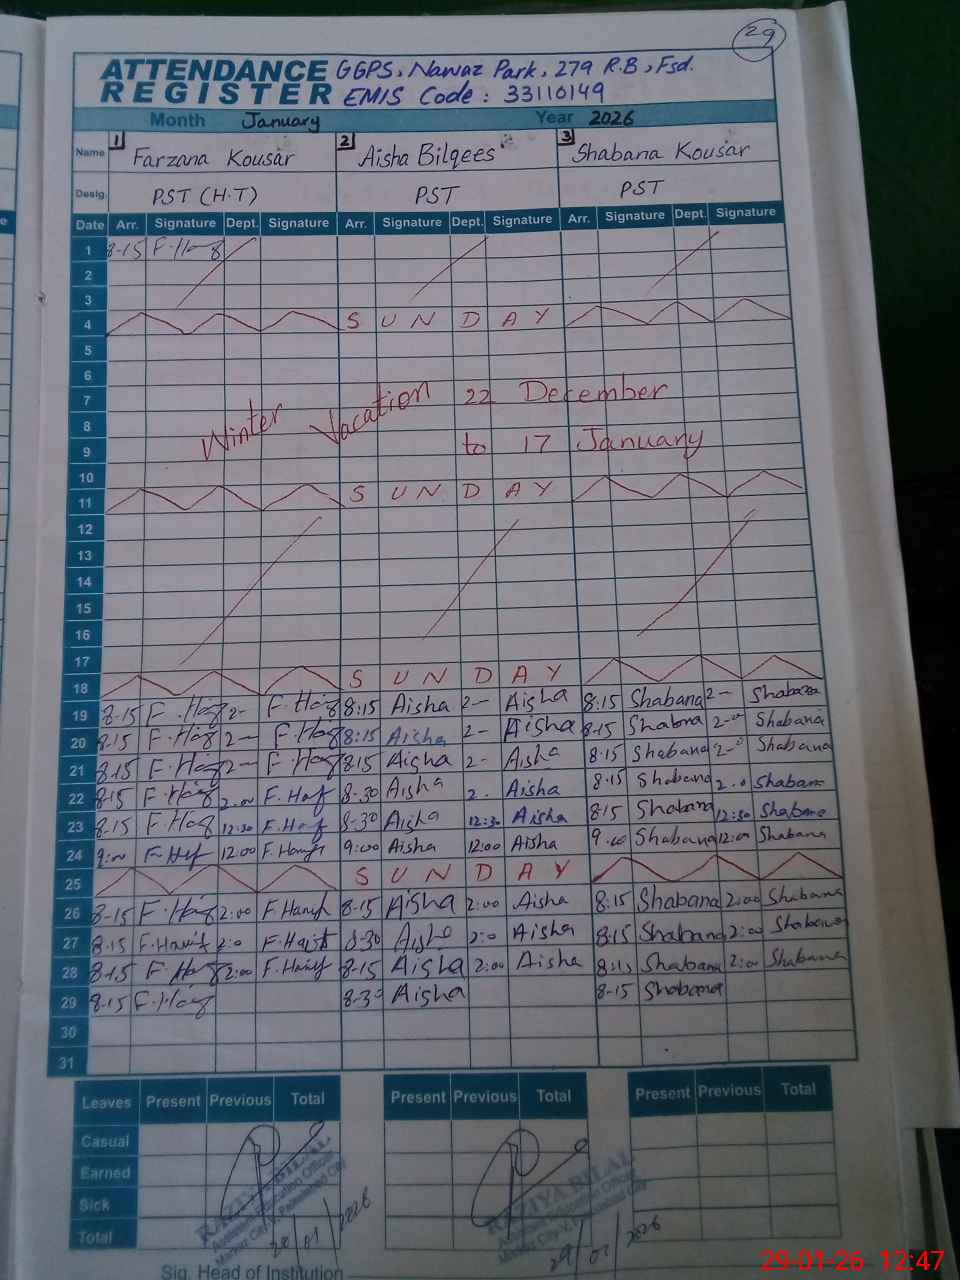 29
ATTENDANCE REGISTER
GGPS, Nawaz Park, 279 R.B, Fsd.
EMIS Code : 33110149
Month January Year 2026
Name 1 Farzana Kousar 2 Aisha Bilqees 3 Shabana Kousar
Desig. PST (H.T) PST PST
Date Arr. Signature Dept. Signature Arr. Signature Dept. Signature Arr. Signature Dept. Signature
1 8-15
2
3
4 SUNDAY
5
6
7 Winter Vacation 22 December
8
9 to 17 January
10
11 SUNDAY
12
13
14
15
16
17
18 SUNDAY
19 8-15 2- 8:15 Aisha 2- Aisha 8:15 Shabana 2- Shabana
20 8-15 2- 8:15 Aisha 2- Aisha 8:15 Shabana 2- Shabana
21 8-15 2- 8:15 Aisha 2- Aisha 8:15 Shabana 2- Shabana
22 8-15 2.00 8-30 Aisha 2. Aisha 8:15 Shabana 2.0 Shabana
23 8-15 12:30 8-30 Aisha 12:30 Aisha 8:15 Shabana 12:30 Shabana
24 9:00 12:00 9:00 Aisha 12:00 Aisha 9.00 Shabana 12:00 Shabana
25 SUNDAY
26 8-15 2:00 F.Hanif 8-15 Aisha 2:00 Aisha 8:15 Shabana 2:00 Shabana
27 8-15 F.Hanif 2:0 F.Hanif 8-30 Aisha 2:0 Aisha 8:15 Shabana 2:00 Shabana
28 8-15 2:00 F.Hanif 8-15 Aisha 2:00 Aisha 8:15 Shabana 2:00 Shabana
29 8-15 8-30 Aisha 8-15 Shabana
30
31
Leaves Present Previous Total Present Previous Total Present Previous Total
Casual
Earned
Sick
Total
RAZIYA BILAL RAZIYA BILAL
Assistant Education Officer Assistant Education Officer
29/01/2026
Sig. Head of Institution
29-01-26 12:47